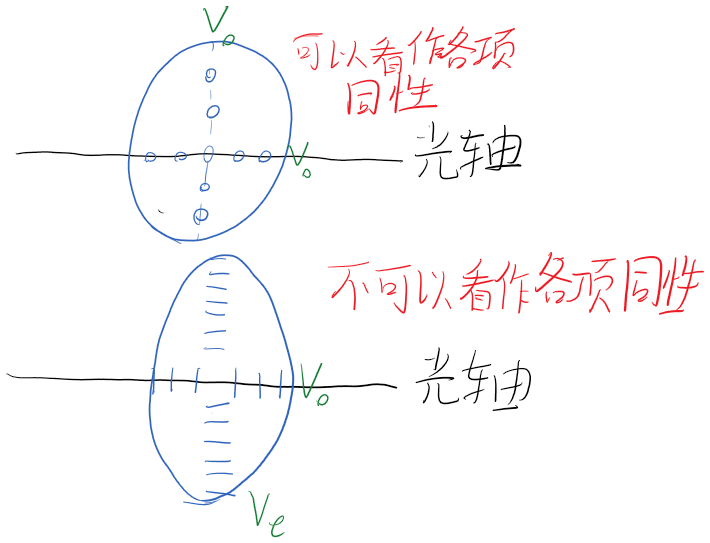 Vo
可以看作各项
同性
Vo
光轴
不可以看作各项同性
Vo
光轴
Ve